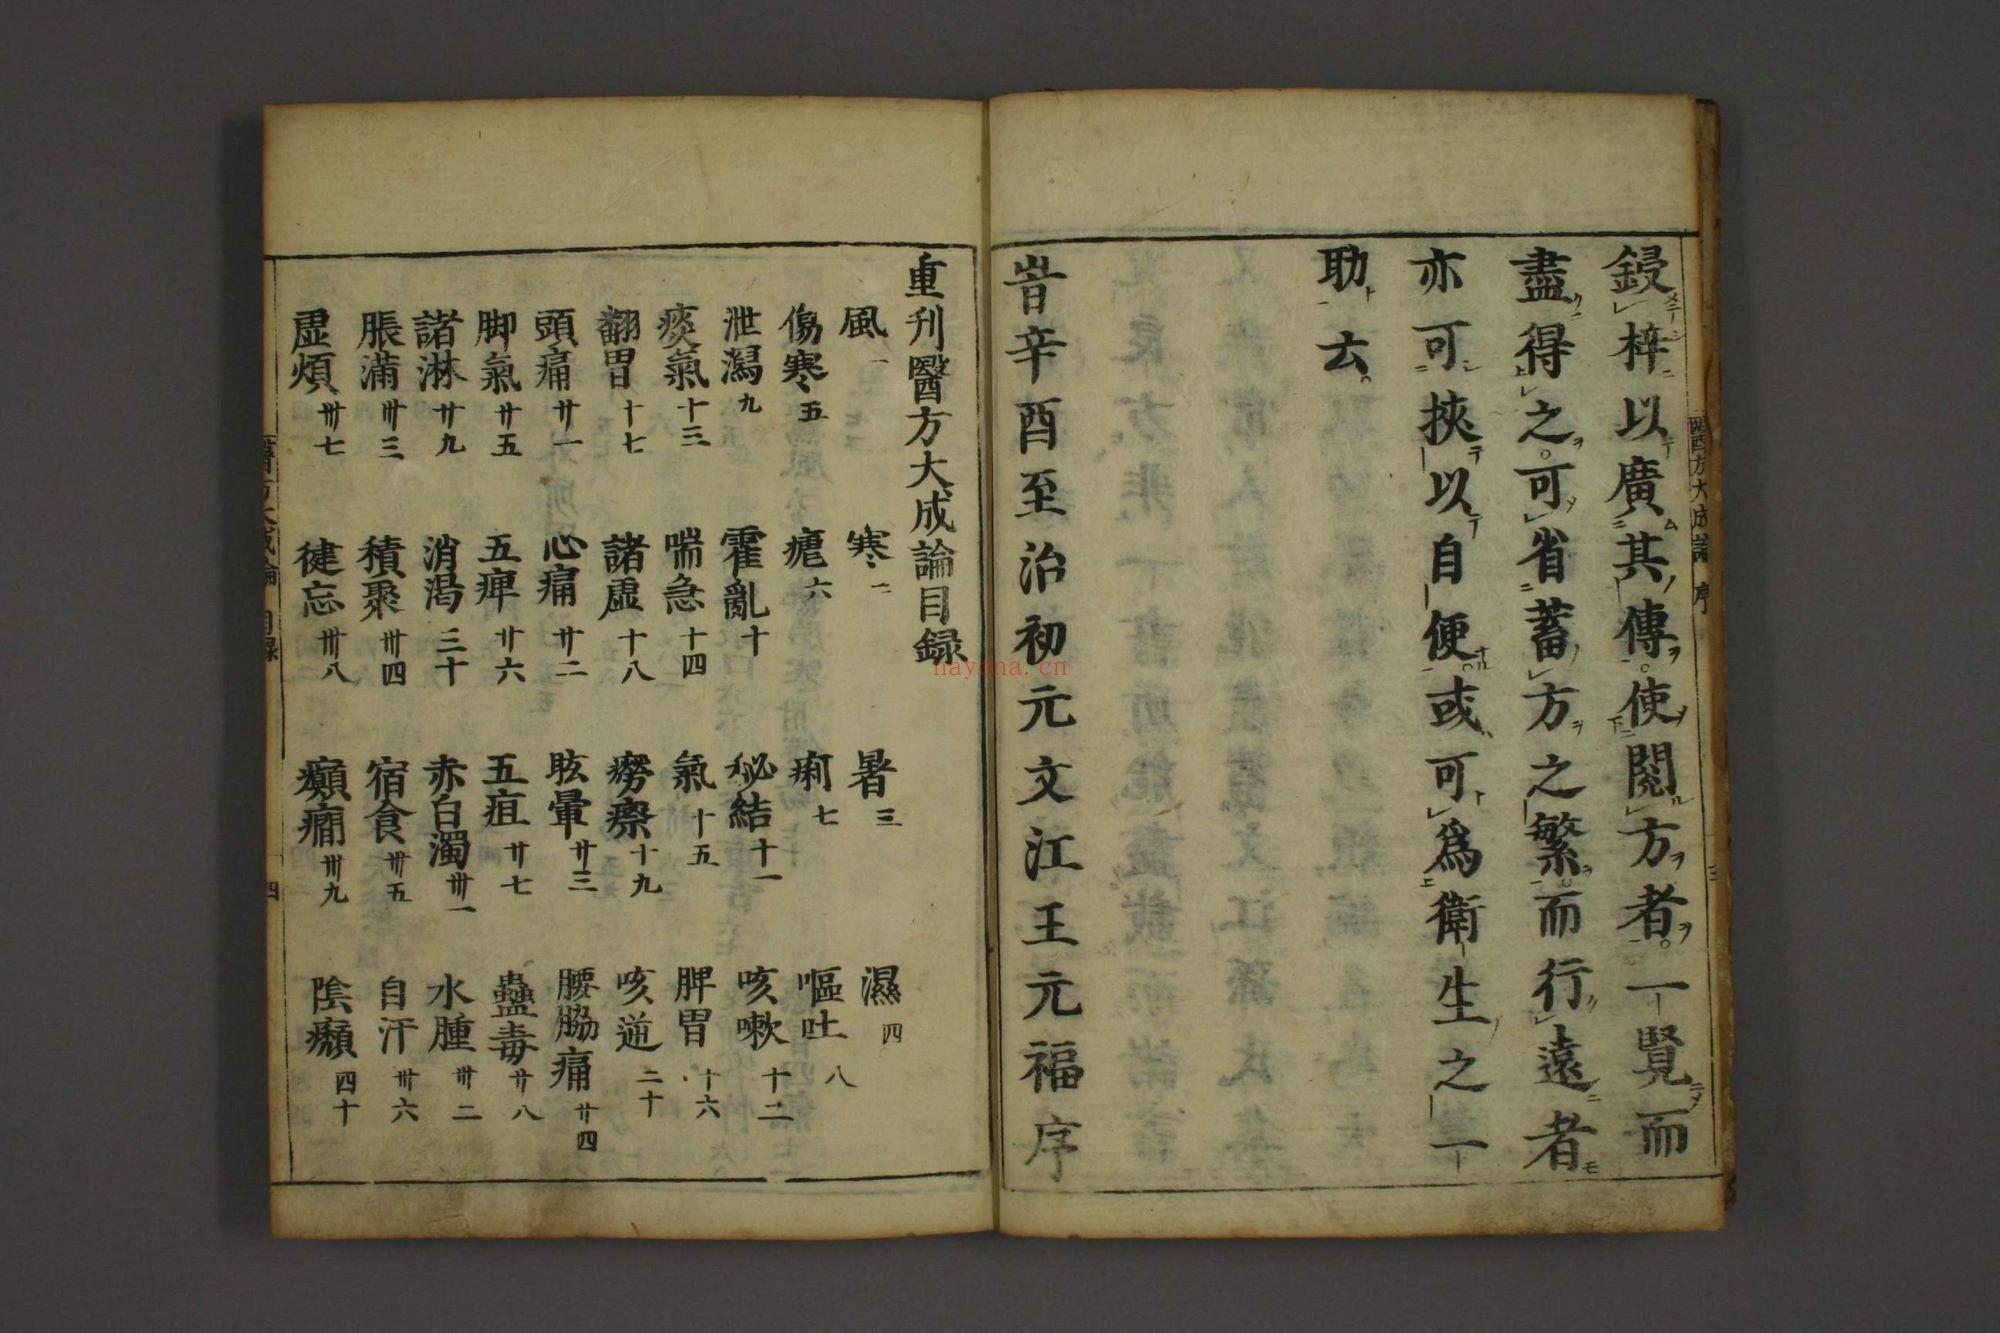 鋟梓以廣其傳使閱方者一覽而
盡得之可省蓄方之繁而行遠者
亦可挾以自便或可爲衛生之一
助云
旹辛酉至治初元文江王元福序
重刊醫方大成論目録
風一 寒二 暑三 濕四
傷寒五 瘧六 痢七 嘔吐八
泄瀉九 霍亂十 秘結十一 咳嗽十二
痰氣十三 喘急十四 氣十五 脾胃十六
翻胃十七 諸虛十八 癆瘵十九 咳逆二十
頭痛廿一 心痛廿二 眩暈廿三 腰脇痛廿四
脚氣廿五 五痺廿六 五疸廿七 蠱毒廿八
諸淋廿九 消渴三十 赤白濁卅一 水腫卅二
脹滿卅三 積聚卅四 宿食卅五 自汗卅六
虛煩卅七 健忘卅八 癲癇卅九 陰癩四十
醫方大成論 序 三
醫方大成論 目録 四
nayona.cn